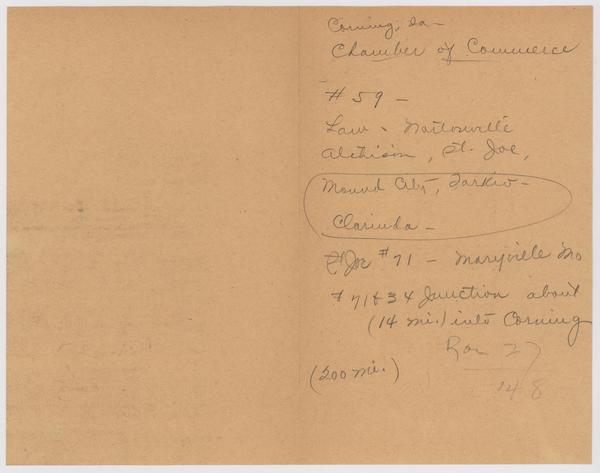 Corning, Ia -
Chamber of Commerce
# 59 -
Law - Nortonville
Atchison, St. Joe,
Mound City, Tarkio -
Clarinda -
St Joe # 71 - Maryville Mo
# 71 & 34 Junction about
(14 mi.) into Corning
27
(200 mi.)
148